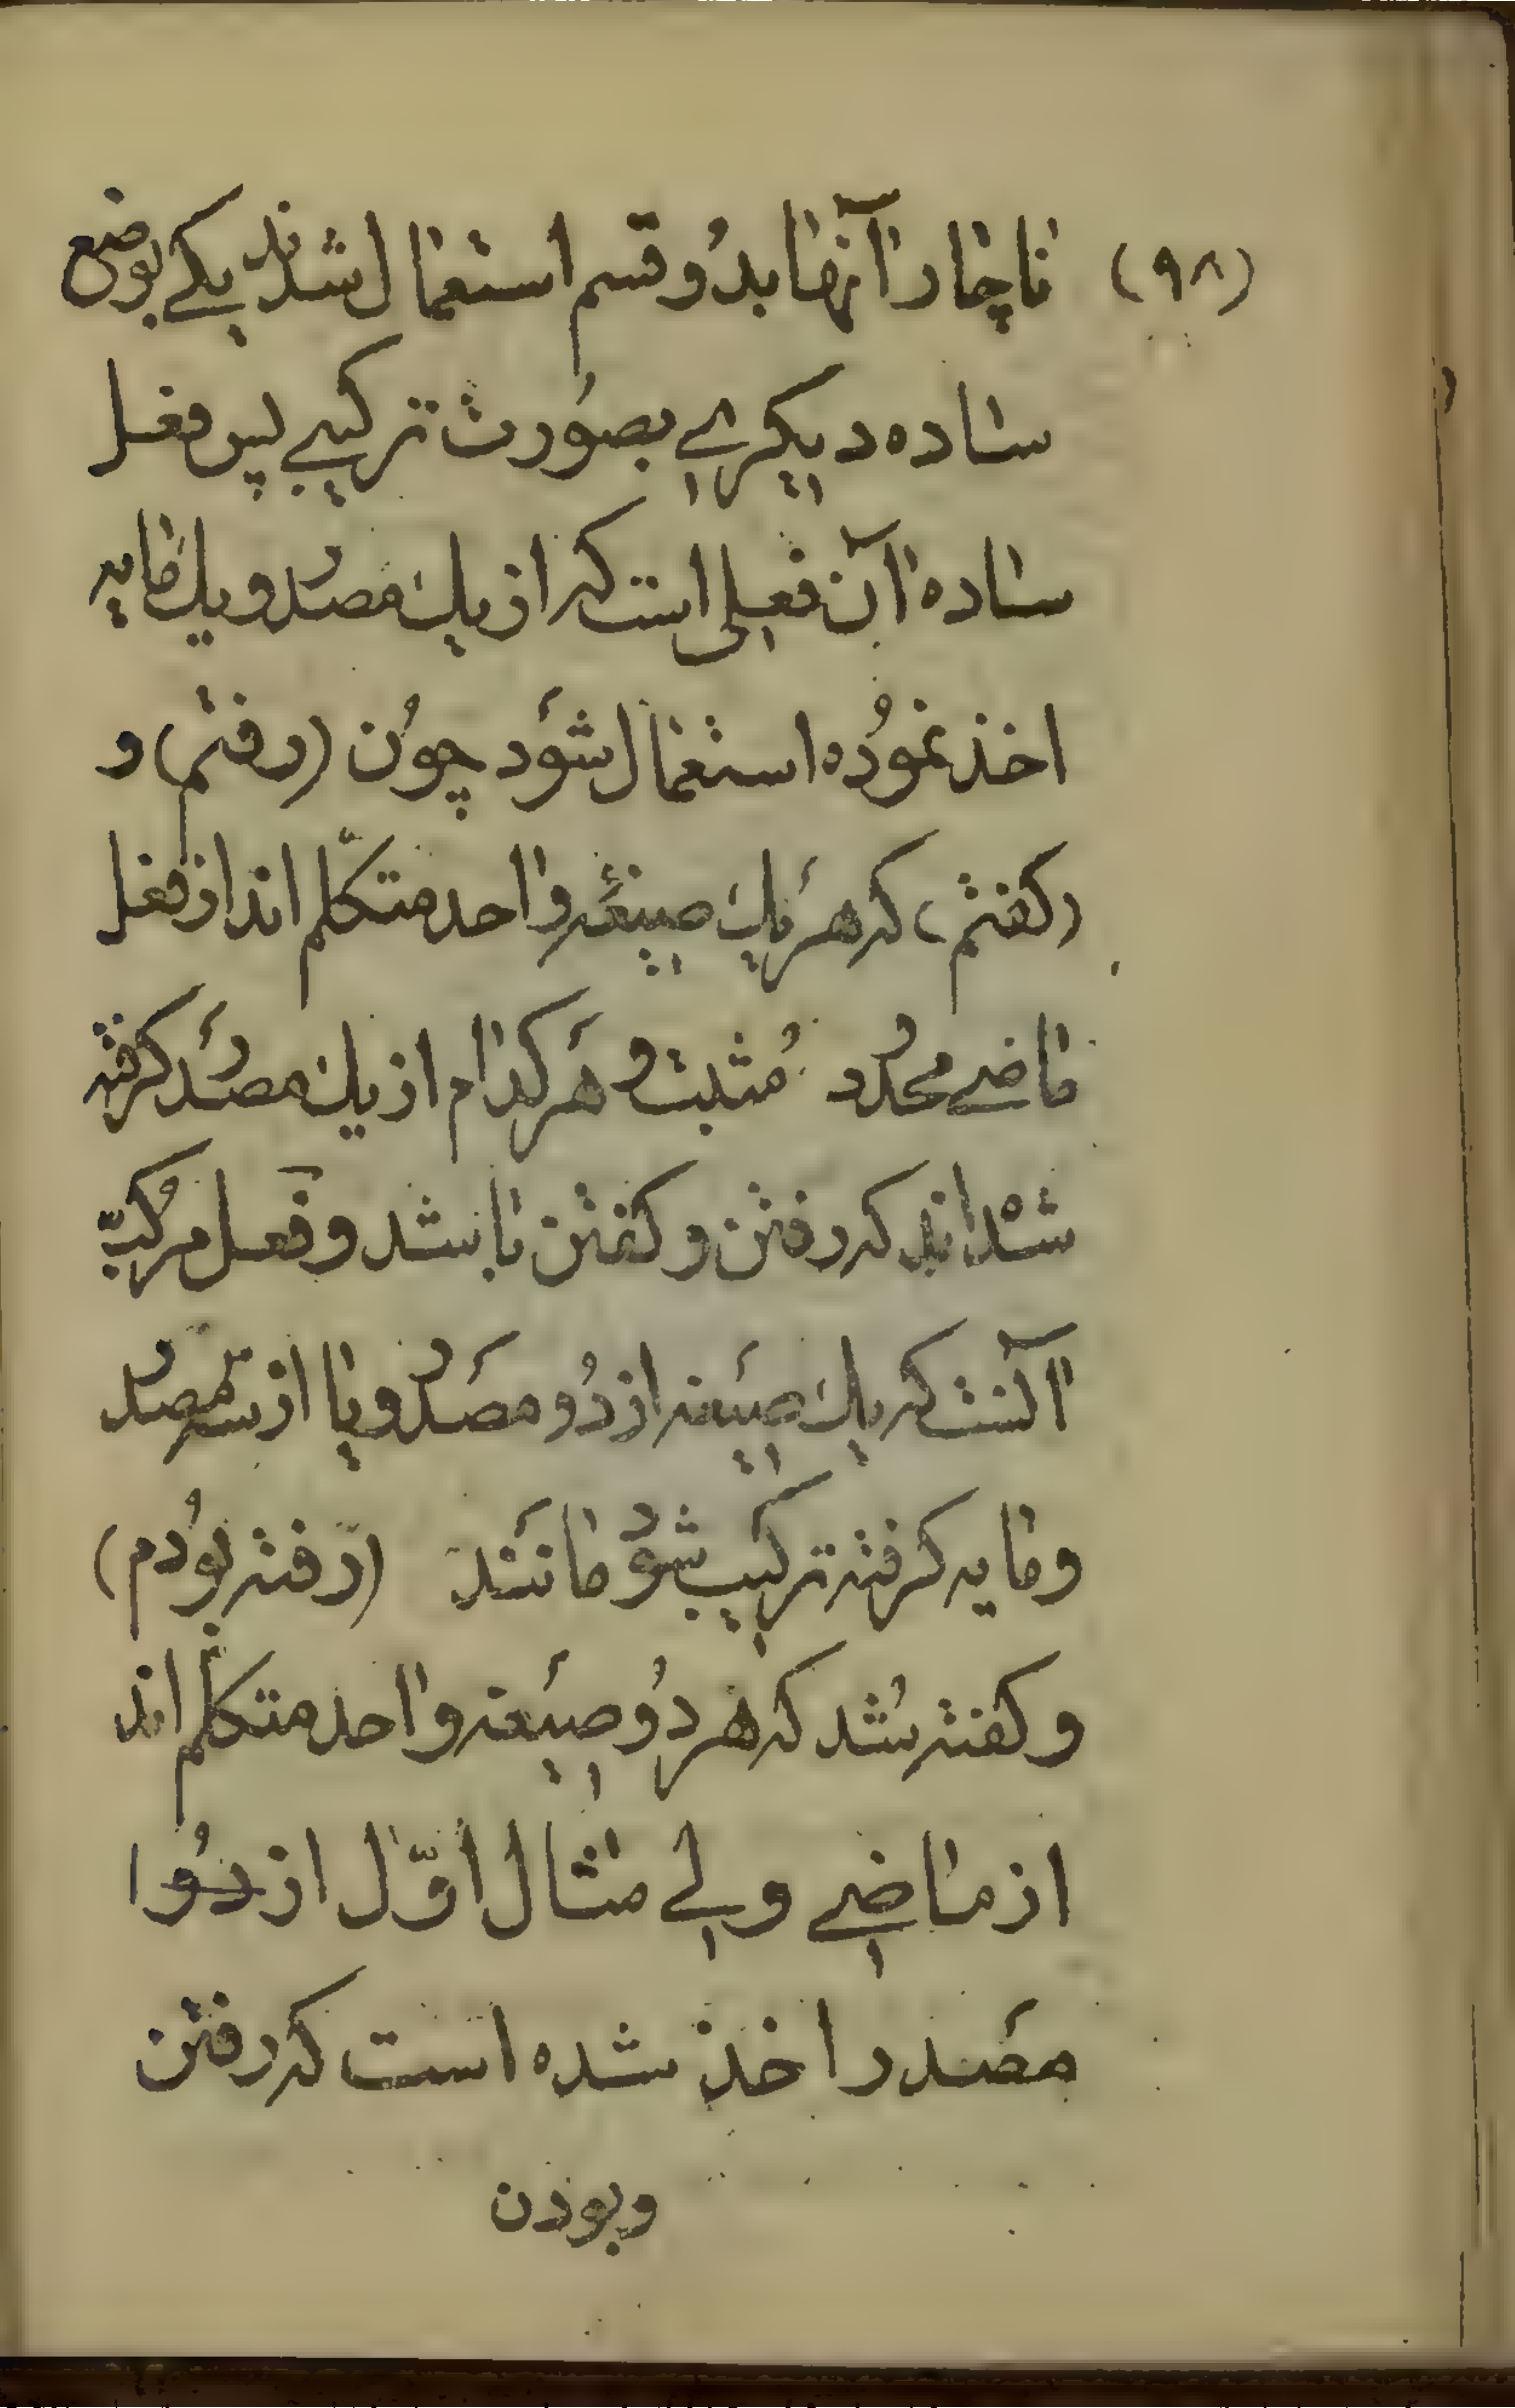 (٩٨) ناچار آنها بدُو قسم استعمال شدند یکے بوضع
ساده دیکرے بصُورت ترکیبے پس فعل
ساده آن فعلی است که از یك مصدر و یك مایه
اخذ نمُوده استعمال شوَد چوُن (رفتم) و
(کفتم) که هرَ یك صیغهٔ واحد متکلّم اند از فعل
ماضے محدُود مُثبت و هرَ کدام از یك مصدَر کرفته
شدْه اند که رفتن و کفتن باشد و فعل مرکُبّ
آنست که یك صیَغه از دُو مصَدر و یا از سه مصدر
و مایه کرفته ترکیَب شوَد مانَند (رَفته بُودم)
و کفته شُد که هر دُو صیَغه واحد متکلّم اند
از ماضے ولے مثال اوّل از دُوا
مصَدر اخذ شده است که رفتن
وبودن